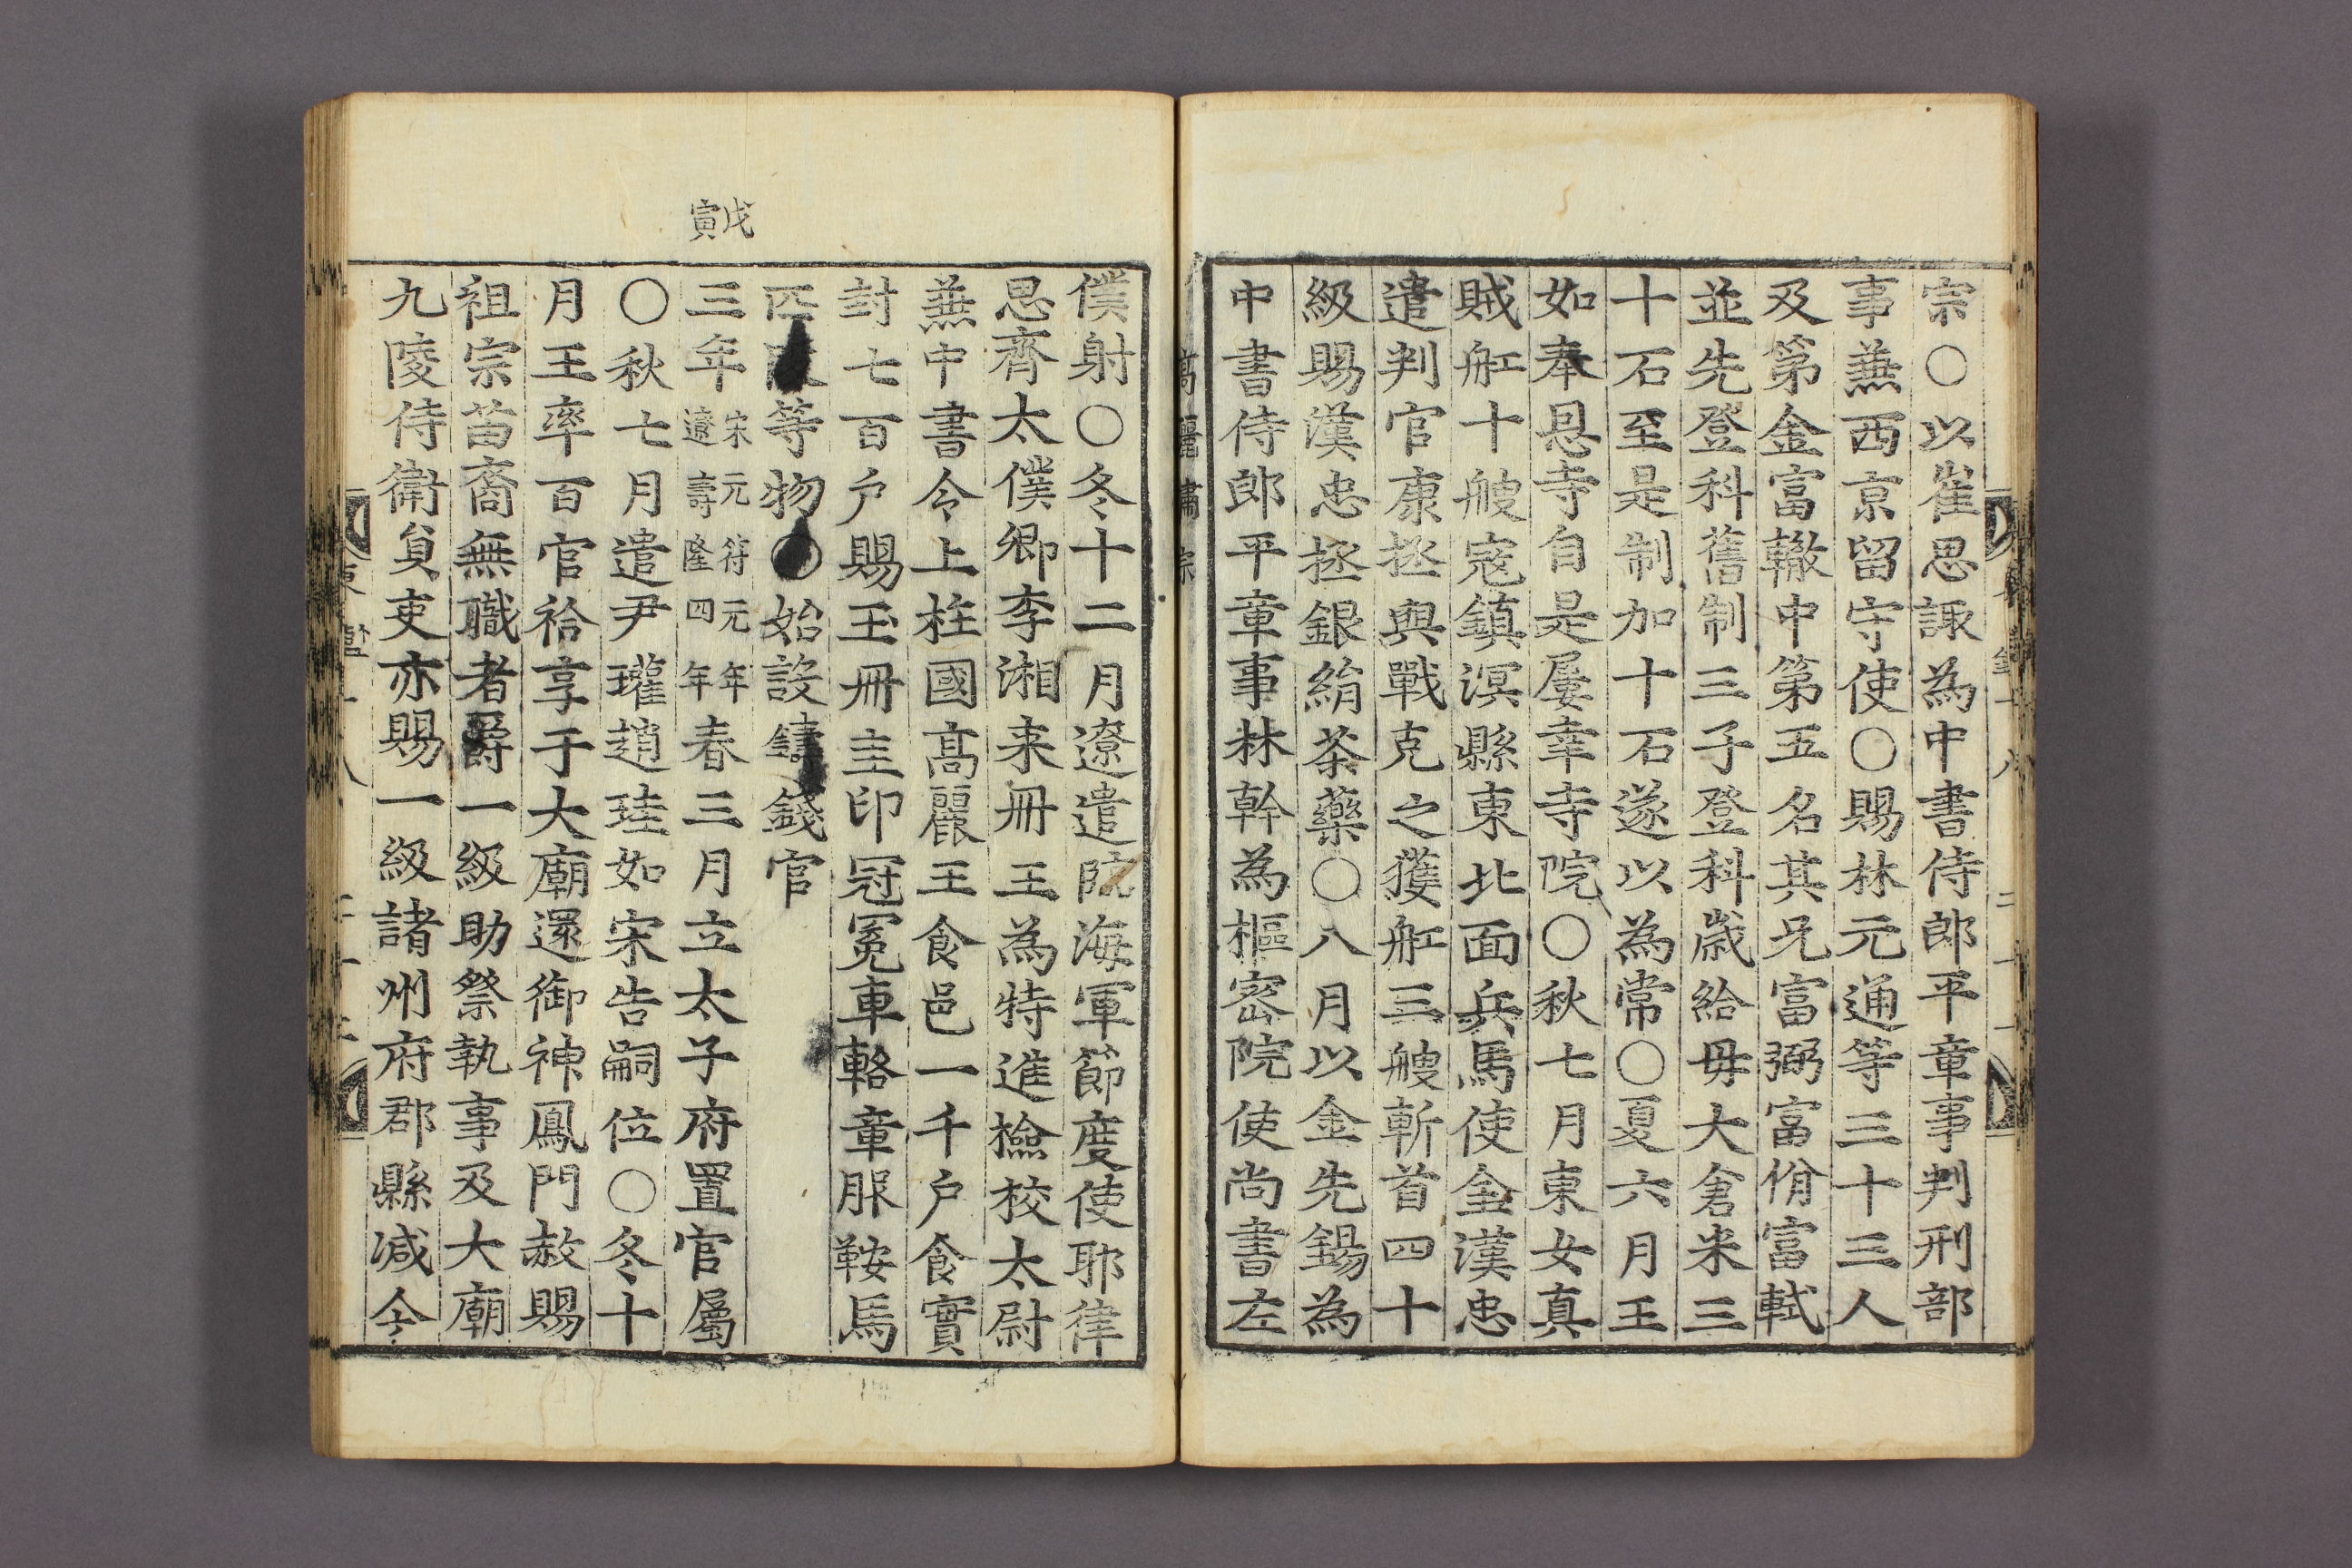 宗○以崔思諏為中書侍郎平章事判刑部
事兼西京留守使○賜林元通等三十三人
及第金富轍中第五名其兄富弼富佾富軾
並先登科舊制三子登科歲給母大倉米三
十石至是制加十石遂以為常○夏六月王
如奉恩寺自是屢幸寺院○秋七月東女真
賊舡十艘寇鎮溟縣東北面兵馬使金漢忠
遣判官康拯與戰克之獲舡三艘斬首四十
級賜漢忠拯銀絹茶藥○八月以金先錫為
中書侍郎平章事林幹為樞密院使尚書左
高麗肅宗
僕射○冬十二月遼遣院海軍節度使耶律
思齊太僕卿李湘来冊王為特進檢校太尉
兼中書令上柱國高麗王食邑一千户食實
封七百户賜玉冊圭印冠冕車輅章服鞍馬
匹段等物○始設鑄錢官
戊寅
三年宋元符元年遼壽隆四年春三月立太子府置官屬
○秋七月遣尹瓘趙珪如宋告嗣位○冬十
月王率百官祫享于大廟還御神鳳門赦賜
祖宗苗裔無職者爵一級助祭執事及大廟
九陵侍衛負吏亦賜一級諸州府郡縣减今